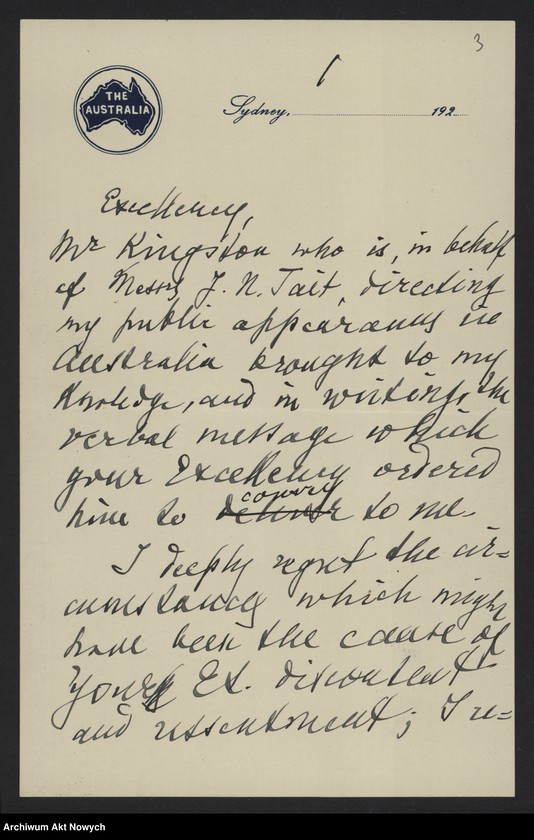 3
1
THE
AUSTRALIA
Sydney, 192
Excellency,
Mr Kingston who is, in behalf
of Messrs J. N. Tait, directing
my public appearances in
Australia brought to my
knowledge, and in writing, the
verbal message which
your Excellency ordered
convey
him to to me.
I deeply regret the cir=
cumstances which might
have been the cause of
Your Ex. discontent
and ressentment; I re=
Archiwum Akt Nowych